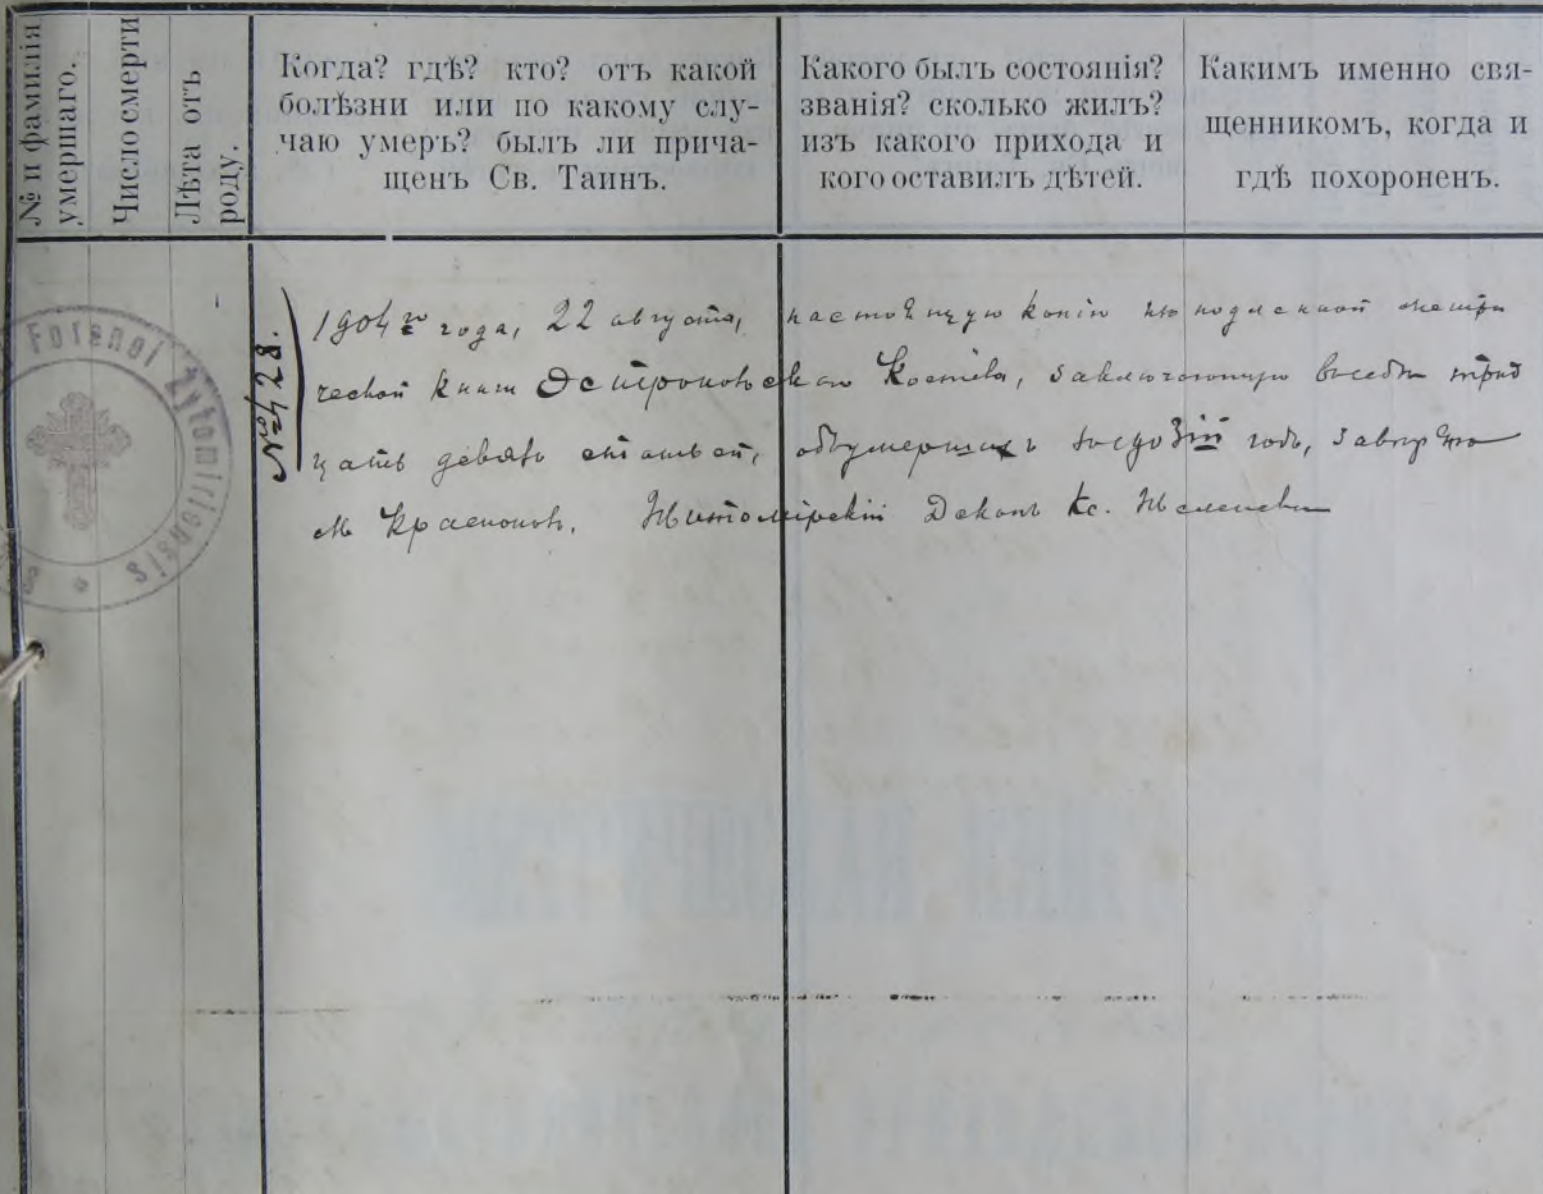 № и фамилія
умершаго.
Число смерти
Лѣта отъ
роду.
Когда? гдѣ? кто? отъ какой
болѣзни или по какому слу-
чаю умеръ? былъ ли прича-
щенъ Св. Таинъ.
Какого былъ состоянія?
званія? сколько жилъ?
изъ какого прихода и
кого оставилъ дѣтей.
Какимъ именно свя-
щенникомъ, когда и
гдѣ похороненъ.
Forensi Zytomiriensis
№ 428.
1904го года, 22 августа, настоящую копію подленной метри
ческой книги Костела, заключающую въ себѣ трид
цать девять статьей, объ умершихъ за годъ, завѣряю
М Житомірскій Деканъ Кс.